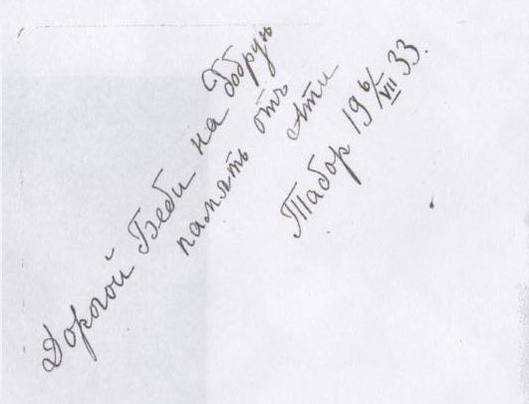 Дорогой Беби на добрую
память отъ Ати
Табор 19 6/VII 33.